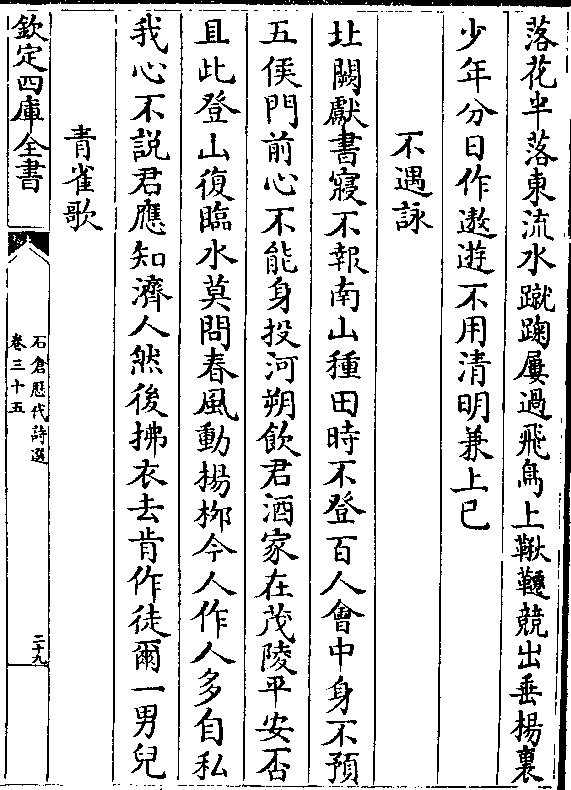 落花半落東流水蹴踘屢過飛鳥上鞦韆競出垂楊裏
少年分日作遨遊不用清明兼上巳
不遇詠
北闕獻書寢不報南山種田時不登百人會中身不預
五侯門前心不能身投河朔飲君酒家在茂陵平安否
且此登山復臨水莫問春風動楊栁今人作人多自私
我心不說君應知濟人然後拂衣去肯作徒爾一男兒
青雀歌
欽定四庫全書
石倉歴代詩選
卷三十五
二十九